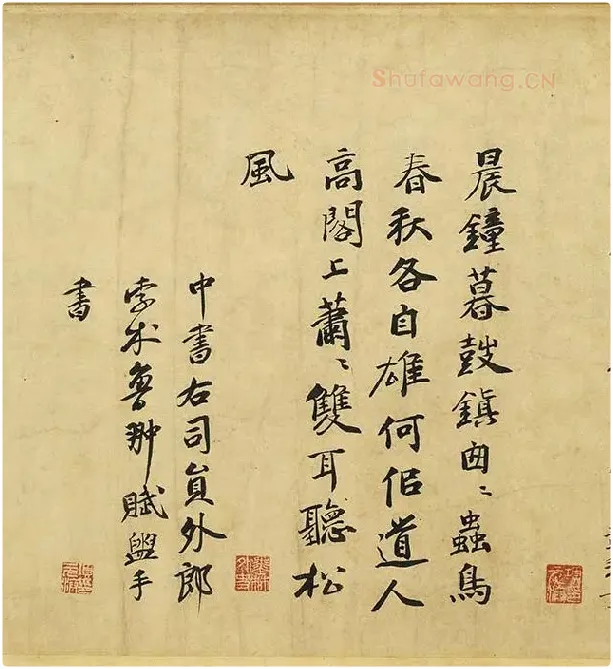 Shufawang.CN
晨鐘暮鼓鎮匈〻蟲鳥
春秋各自雄何佀道人
高閣上蕭〻雙耳聽松
風
中書右司員外郎
孛朮魯翀賦盥手
書